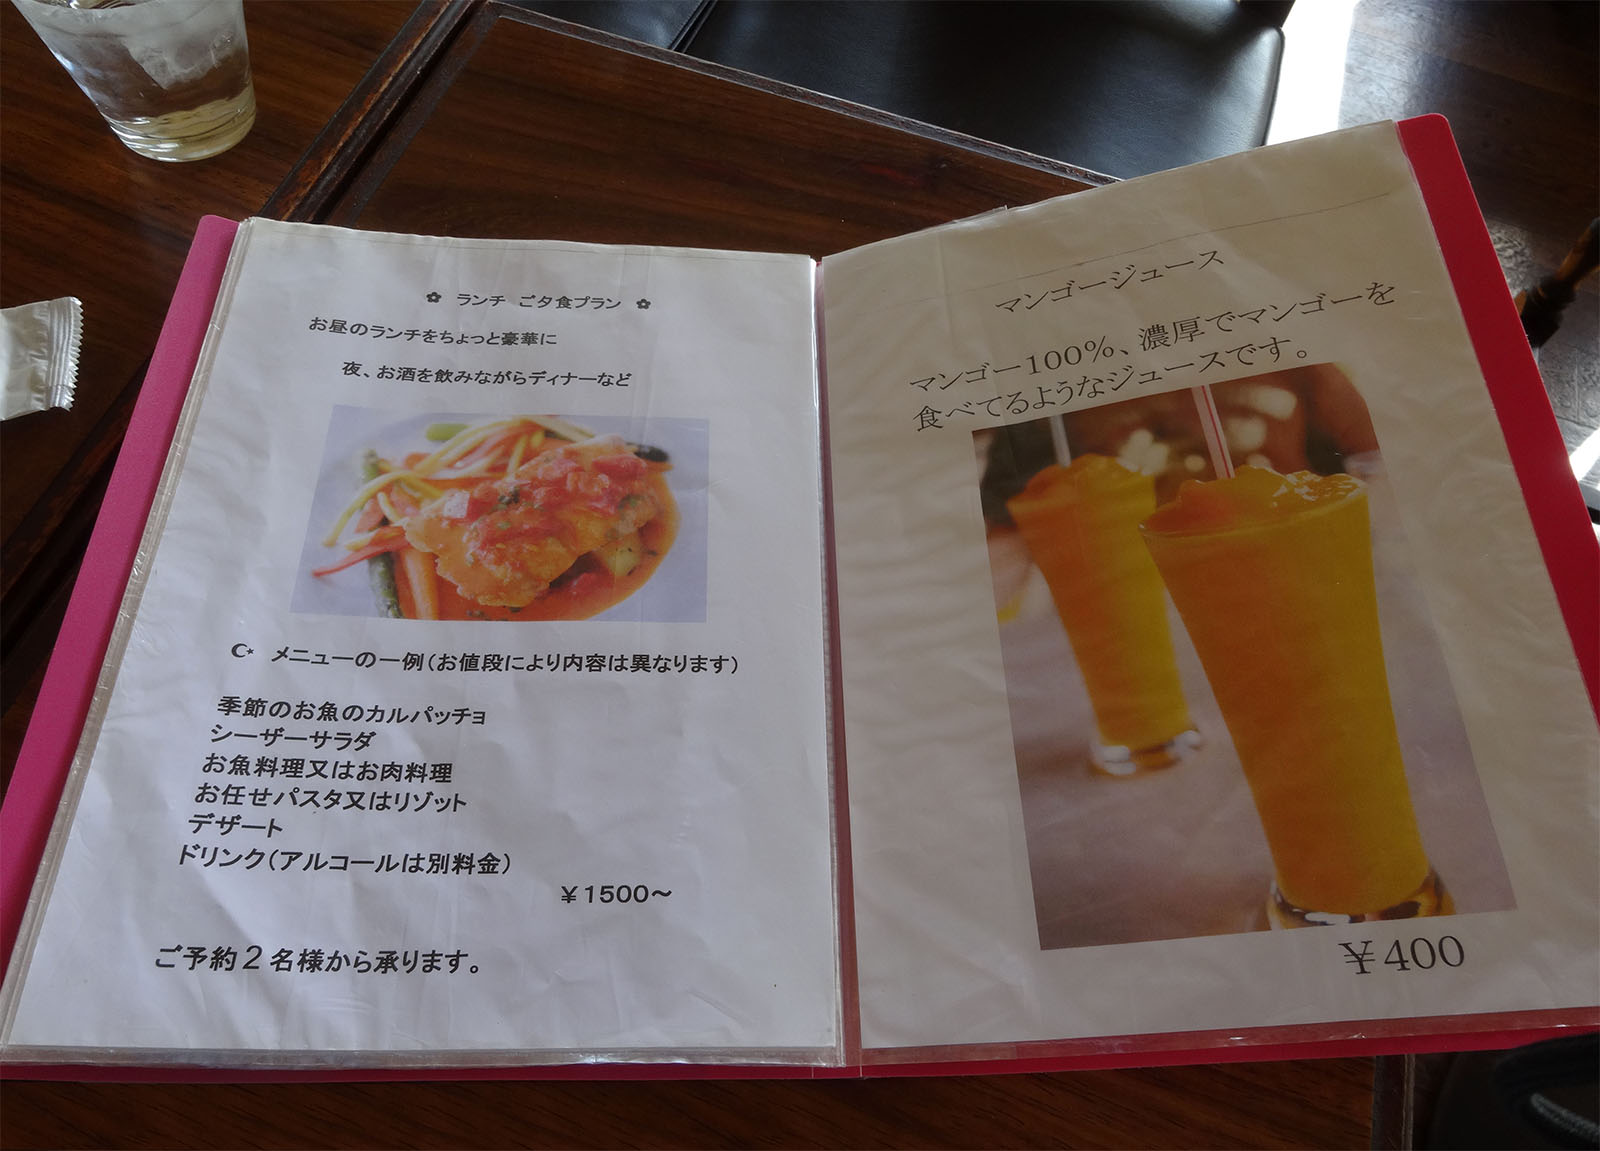 ✿ ランチ ご夕食プラン ✿
お昼のランチをちょっと豪華に
夜、お酒を飲みながらディナーなど
☪ メニューの一例(お値段により内容は異なります)
季節のお魚のカルパッチョ
シーザーサラダ
お魚料理又はお肉料理
お任せパスタ又はリゾット
デザート
ドリンク(アルコールは別料金)
¥1500~
ご予約2名様から承ります。
マンゴージュース
マンゴー100%、濃厚でマンゴーを
食べてるようなジュースです。
¥400